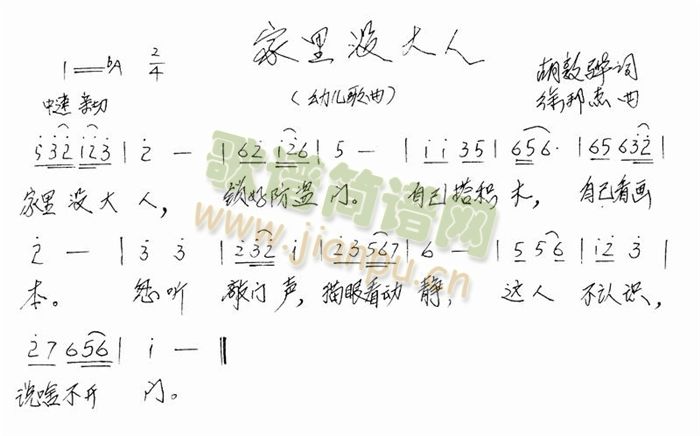 家里没大人
1=bA 2/4
(幼儿歌曲)
胡敦骅词
中速 亲切
徐邦杰曲
5 3 2 1 2 3 | 2 — | 6 2 1 2 6 | 5 — | 1 1 3 5 | 6 5 6· | 6 5 6 3 2 |
家里没大人, 锁好防盗门。 自己搭积木, 自己看画
2 — | 3 3 | 2 3 2 1 | 2 3 5 6 7 | 6 — | 5 5 6 | 1 2 3 |
本。 忽听 敲门声, 猫眼看动静, 这人 不认识,
2 7 6 5 6 | 1 — ‖
说啥不开 门。
歌谱简谱网
www.jianpu.cn